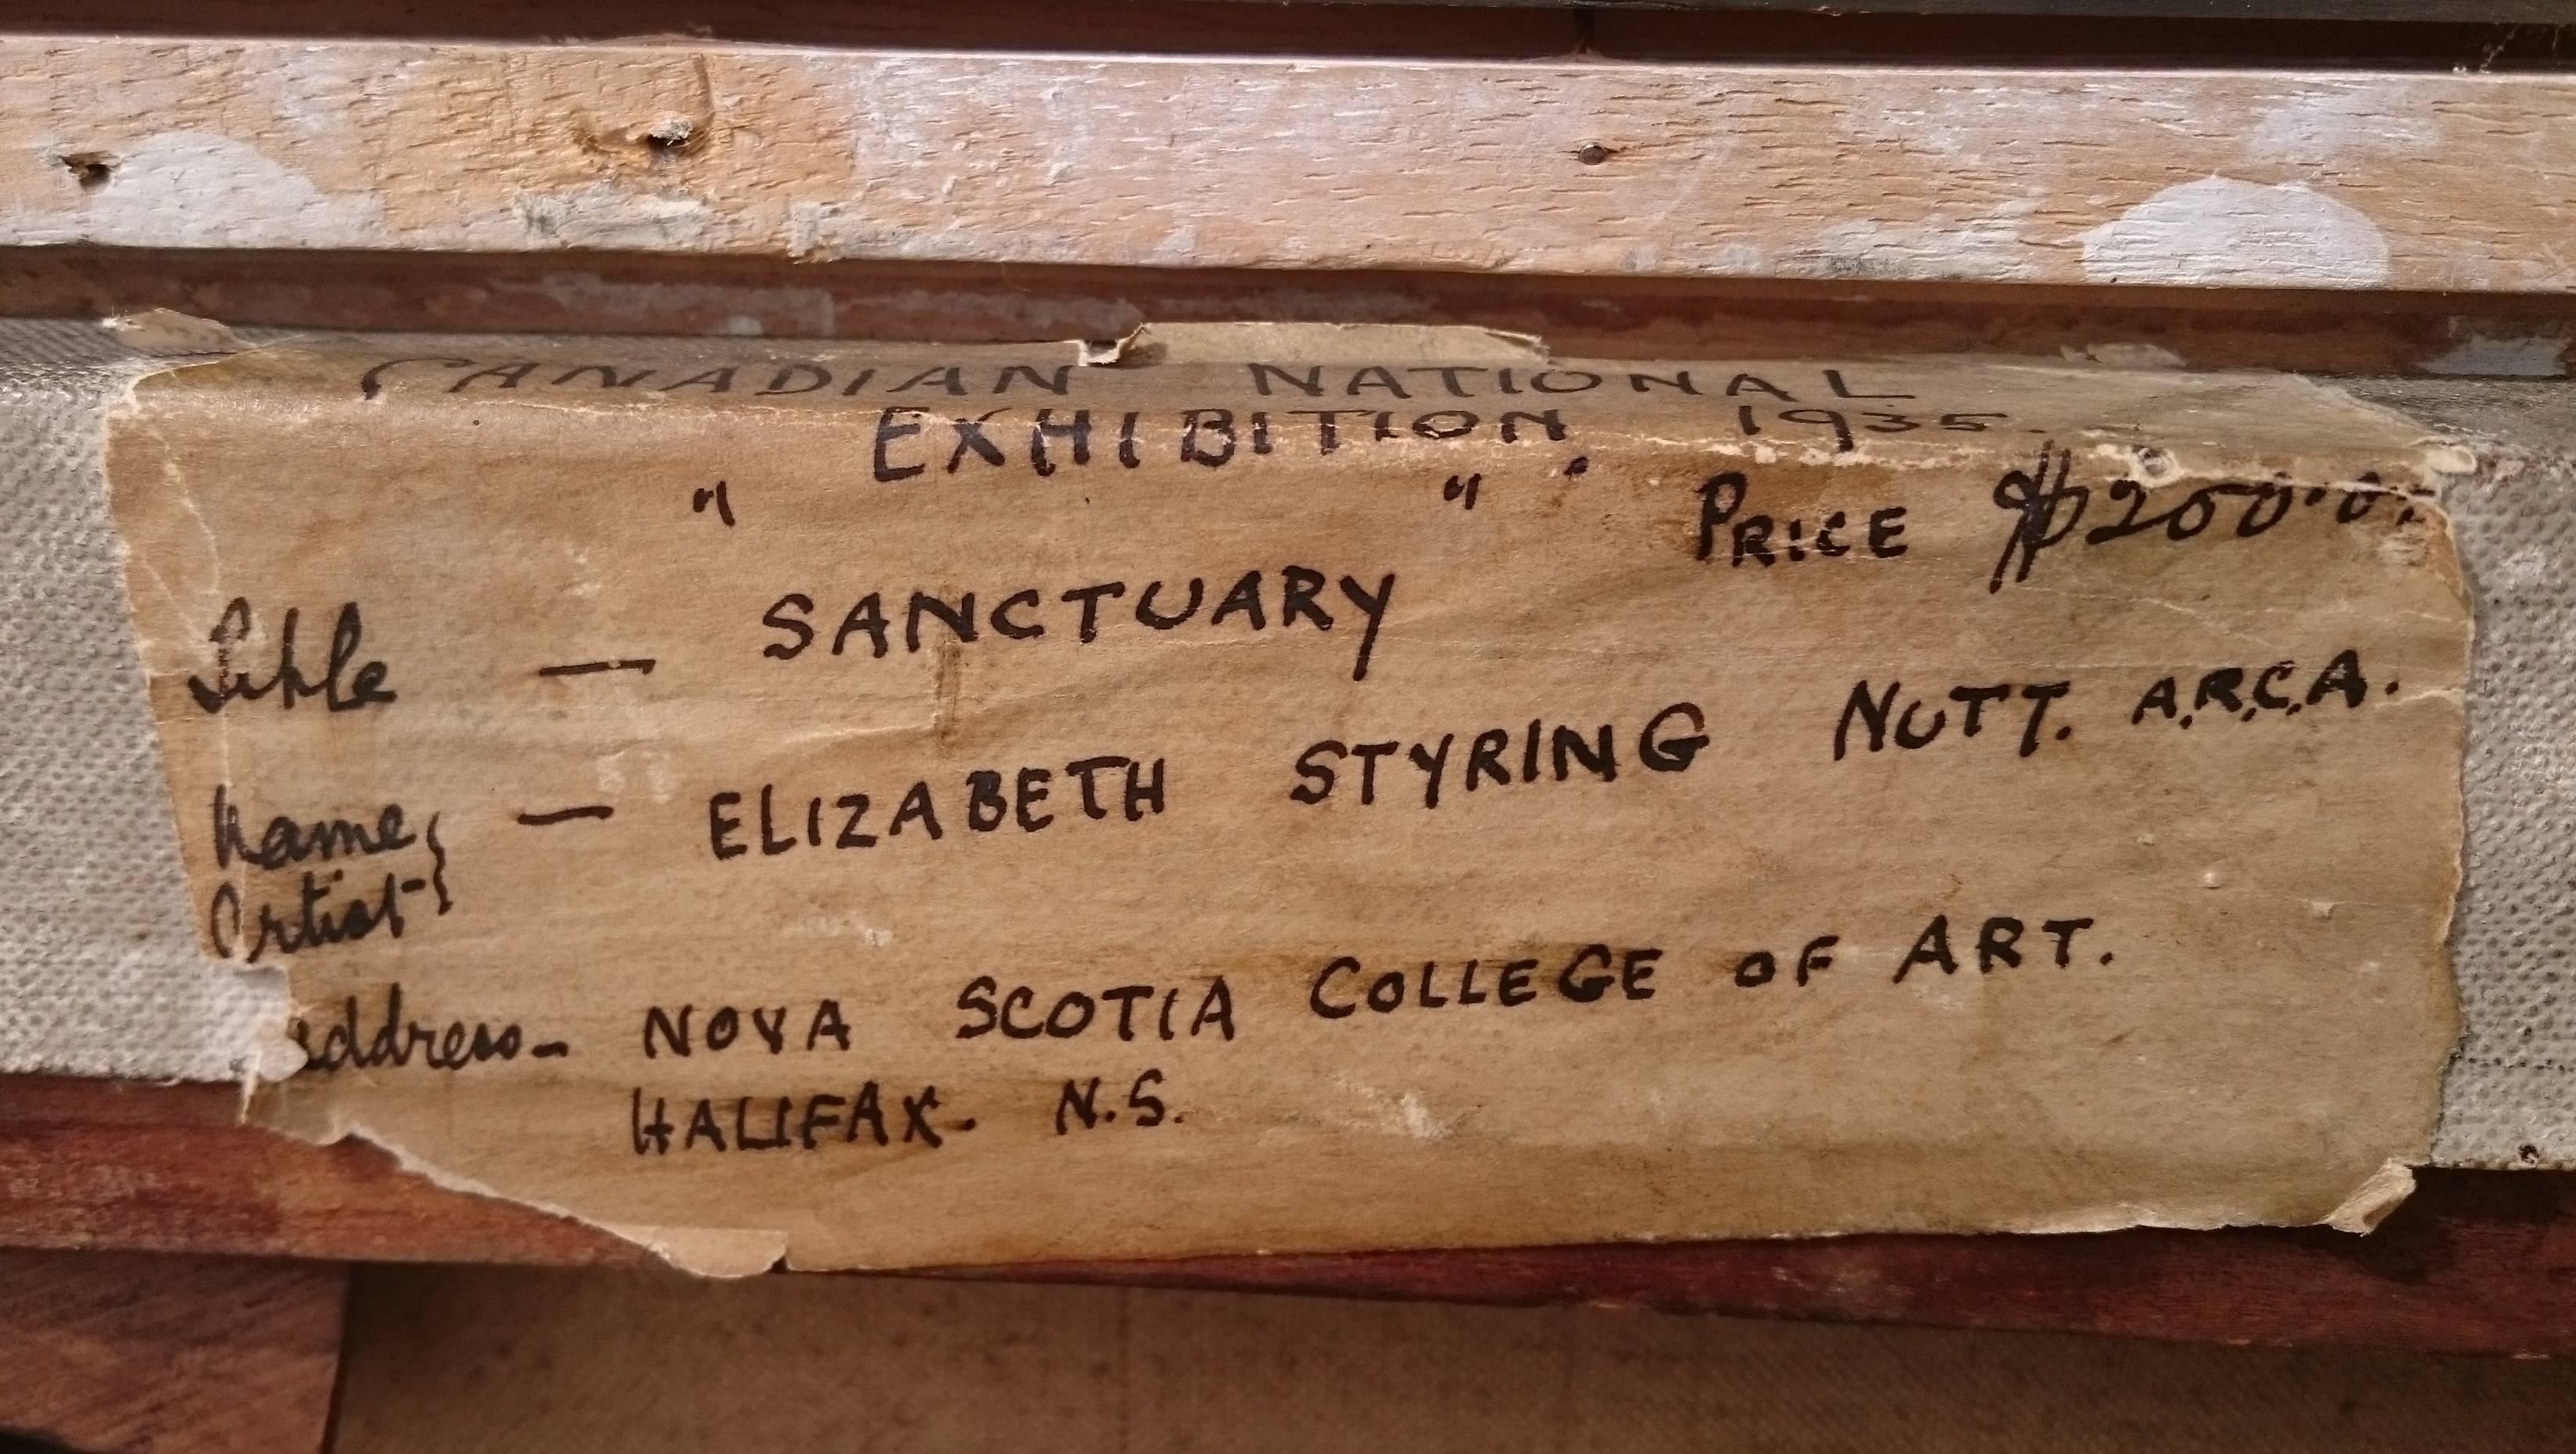 CANADIAN NATIONAL
EXHIBITION. 1935.
" " . PRICE $200.0.
Title — SANCTUARY
Name } — ELIZABETH STYRING NUTT. A.R.C.A.
Artist }
address - NOVA SCOTIA COLLEGE OF ART.
HALIFAX. N.S.